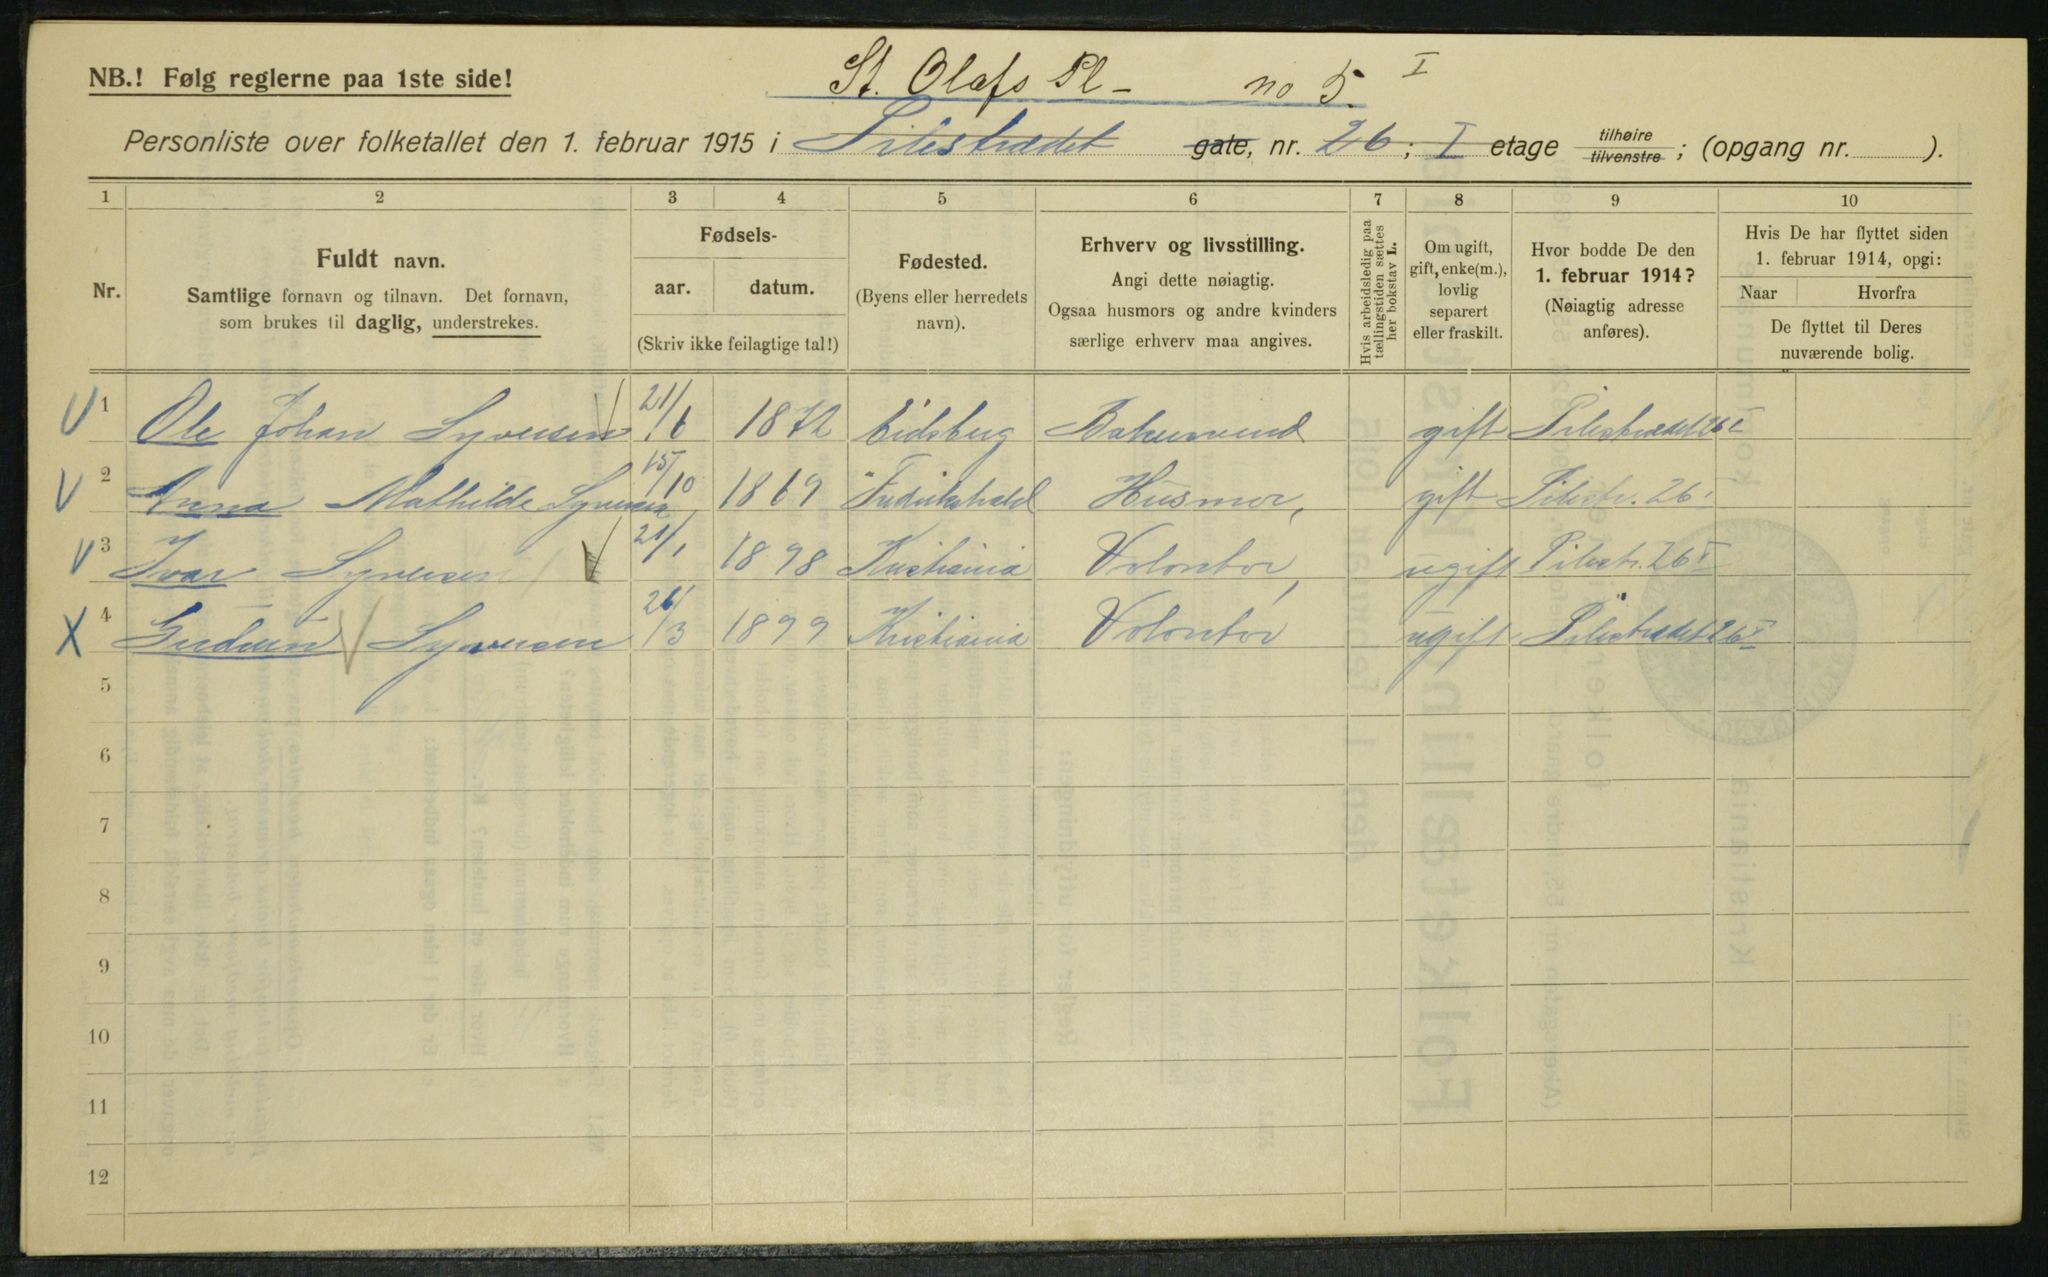 St. Olafs Pl - no 5. I
NB.! Følg reglerne paa 1ste side!
Personliste over folketallet den 1. februar 1915 i Pilestrædet gate, nr. 26; I etage tilhøire / tilvenstre; (opgang nr. ).
1 2 3 4 5 6 7 8 9 10
Nr.
Fuldt navn.
Samtlige fornavn og tilnavn. Det fornavn,
som brukes til daglig, understrekes.
Fødsels-
aar. datum.
(Skriv ikke feilagtige tal!)
Fødested.
(Byens eller herredets
navn).
Erhverv og livsstilling.
Angi dette nøiagtig.
Ogsaa husmors og andre kvinders
særlige erhverv maa angives.
Hvis arbeidsledig paa
tællingstiden sættes
her bokstav L.
Om ugift,
gift, enke(m.),
lovlig
separert
eller fraskilt.
Hvor bodde De den
1. februar 1914?
(Nøiagtig adresse
anføres).
Hvis De har flyttet siden
1. februar 1914, opgi:
Naar Hvorfra
De flyttet til Deres
nuværende bolig.
V 1 Ole Johan Syversen 21/6 1872 Eidsberg gift Pilestrædet 26 I
V 2 Anna Mathilde Syversen 15/10 1869 Fredrikshald Husmor, gift Pilestr. 26 I
V 3 Ivar Syversen 21/1 1898 Kristiania Volontør, ugift Pilestr. 26 I
X 4 Gudrun Syversen 26/3 1899 Kristiania Volontør ugift Pilestrædet 26 I
5
6
7
8
9
10
11
12